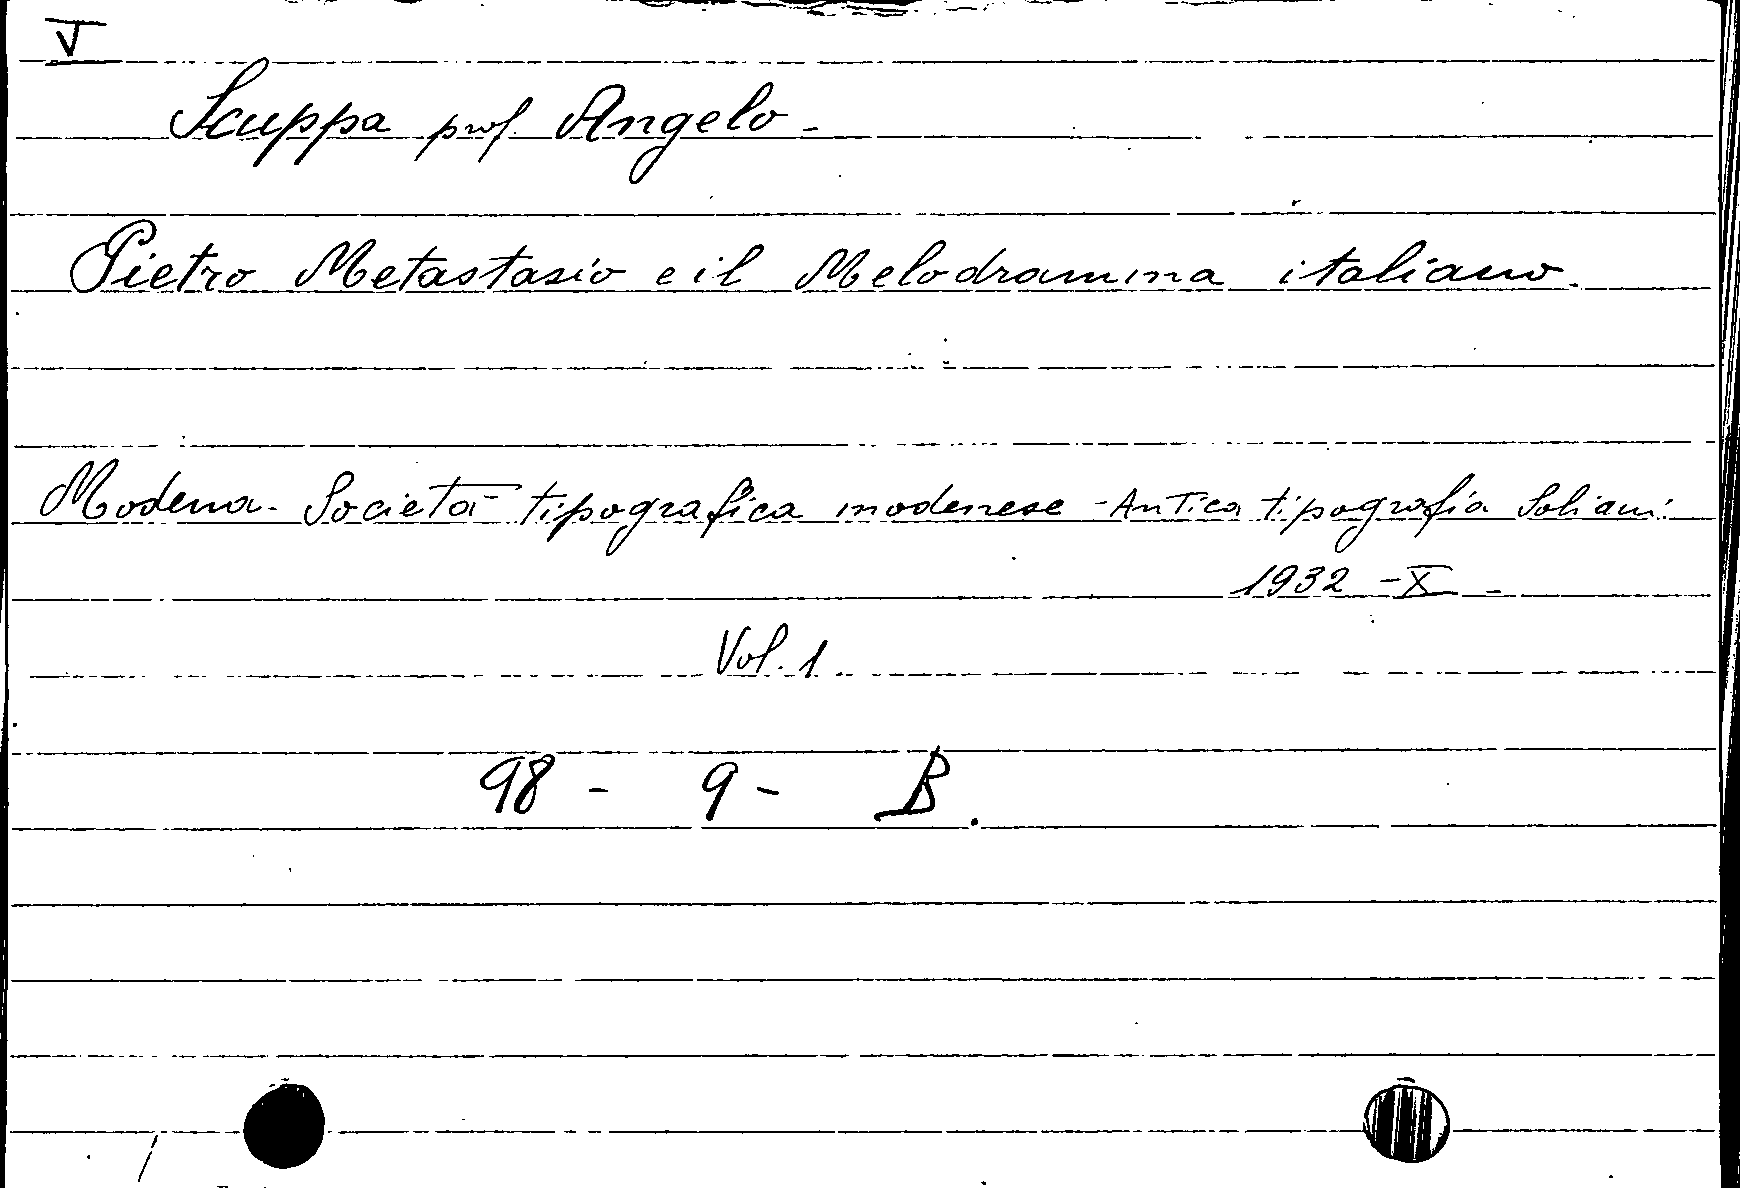 V
Scuppa prof. Angelo -
Pietro Metastasio e il Melodramma italiano.
Modena - Società tipografica modenese - Antica tipografia Soliani.
1932 - X -
Vol. 1.
98 - 9 - B.